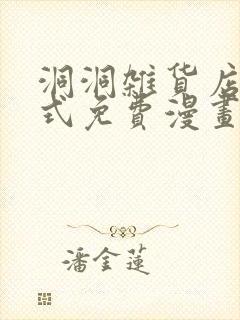 洞洞雜貨店
式免費漫畫
潘金蓮